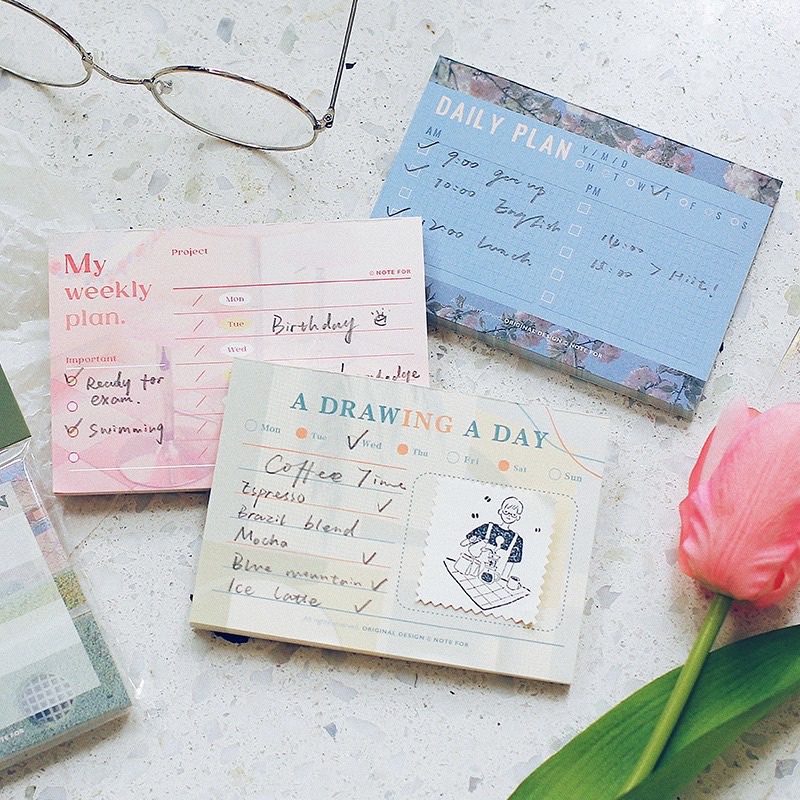 DAILY PLAN
Y / M / D
M T W T F S S
AM
9:00 get up
10:00 English
12:00 lunch
PM
14:00
15:00 > Hiit!
ORIGINAL DESIGN © NOTE FOR
My
weekly
plan.
Project
© NOTE FOR
Important
Ready for
exam.
Swimming
Mon
Tue Birthday
Wed
A DRAWING A DAY
Mon Tue Wed Thu Fri Sat Sun
Coffee Time
Espresso
Brazil blend
Mocha
Blue mountain
Ice latte
All rights reserved. ORIGINAL DESIGN © NOTE FOR